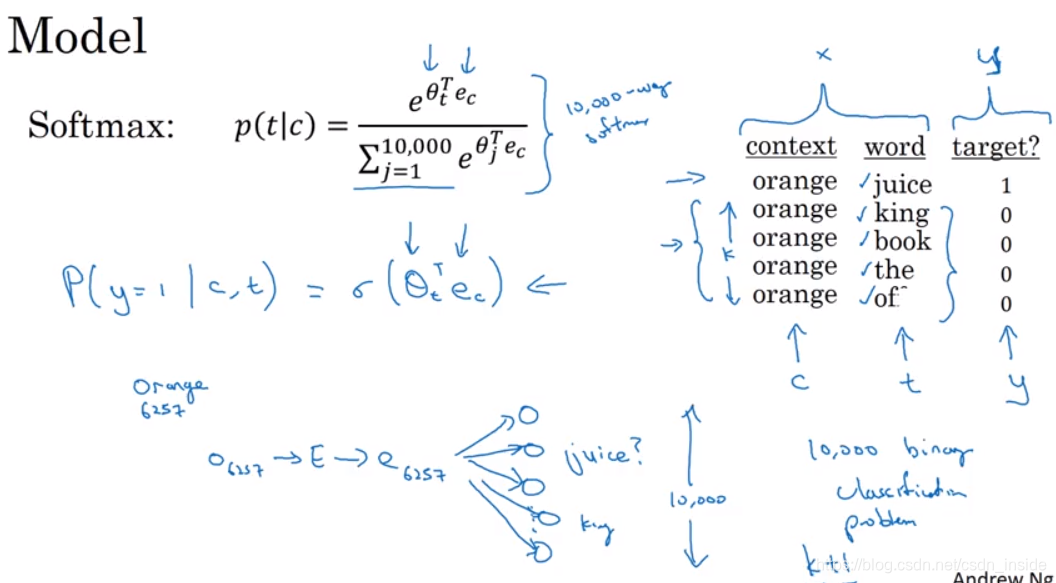 Model
Softmax: p(t|c) = e^{θ_t^T e_c} / ∑_{j=1}^{10,000} e^{θ_j^T e_c}
10,000-way
softmax
x y
context word target?
→ orange ✓juice 1
orange ✓king 0
orange ✓book 0
k
orange ✓the 0
orange ✓of 0
c t y
P(y=1 | c,t) = σ(θ_t^T e_c) ←
Orange
6257
o_6257 → E → e_6257
juice?
king
10,000
10,000 binary
classification
problem
k+1
https://blog.csdn.net/csdn_inside
Andrew Ng